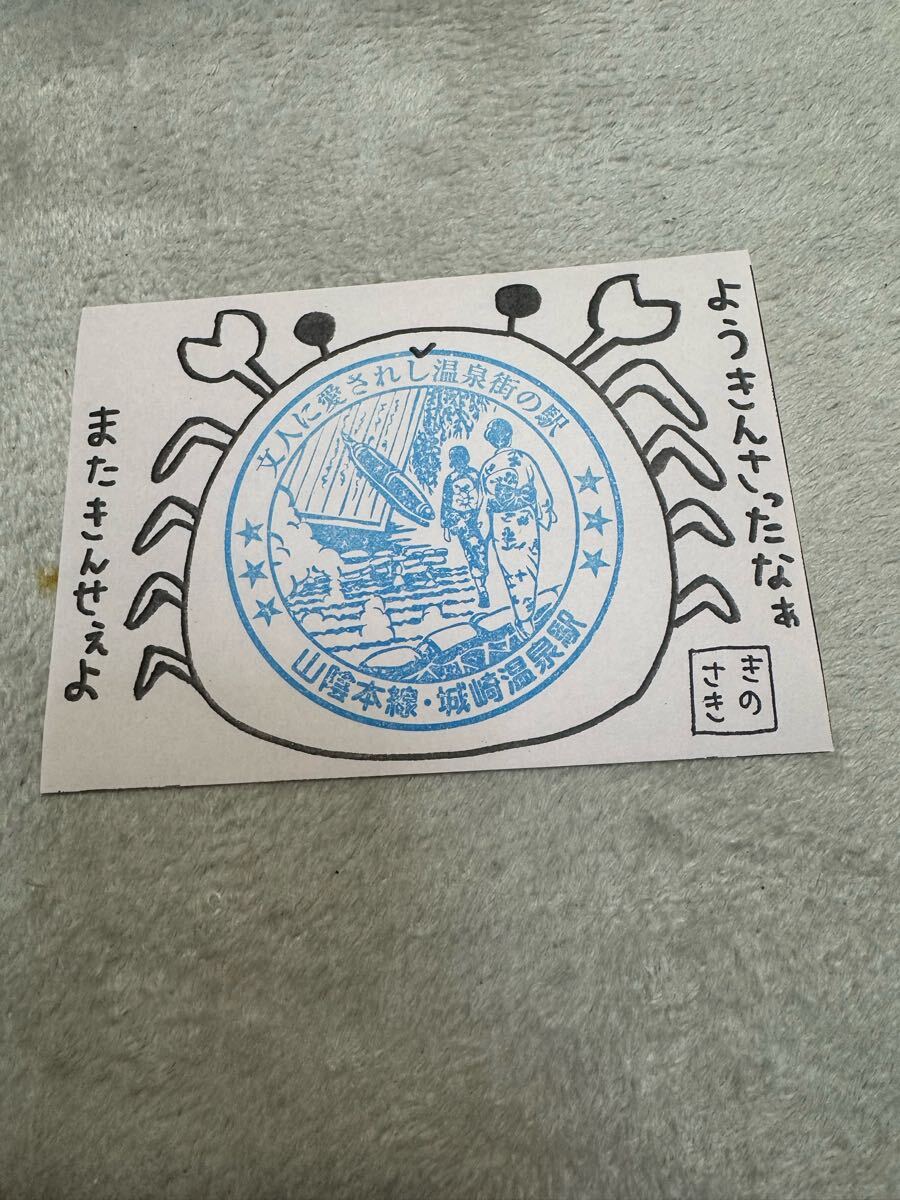 ようきんさったなぁ
きの
さき
文人に愛されし温泉街の駅
山陰本線・城崎温泉駅
またきんせぇよ